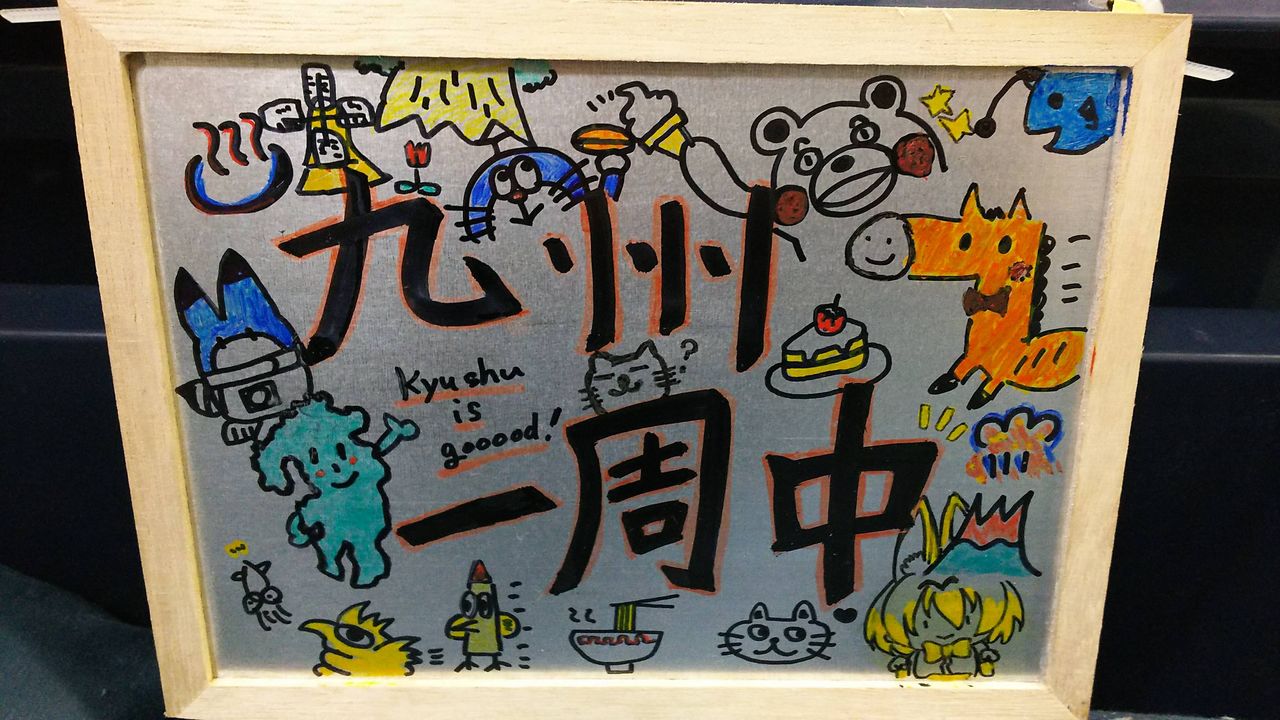 九州
Kyushu
is
gooood!
?
一周中